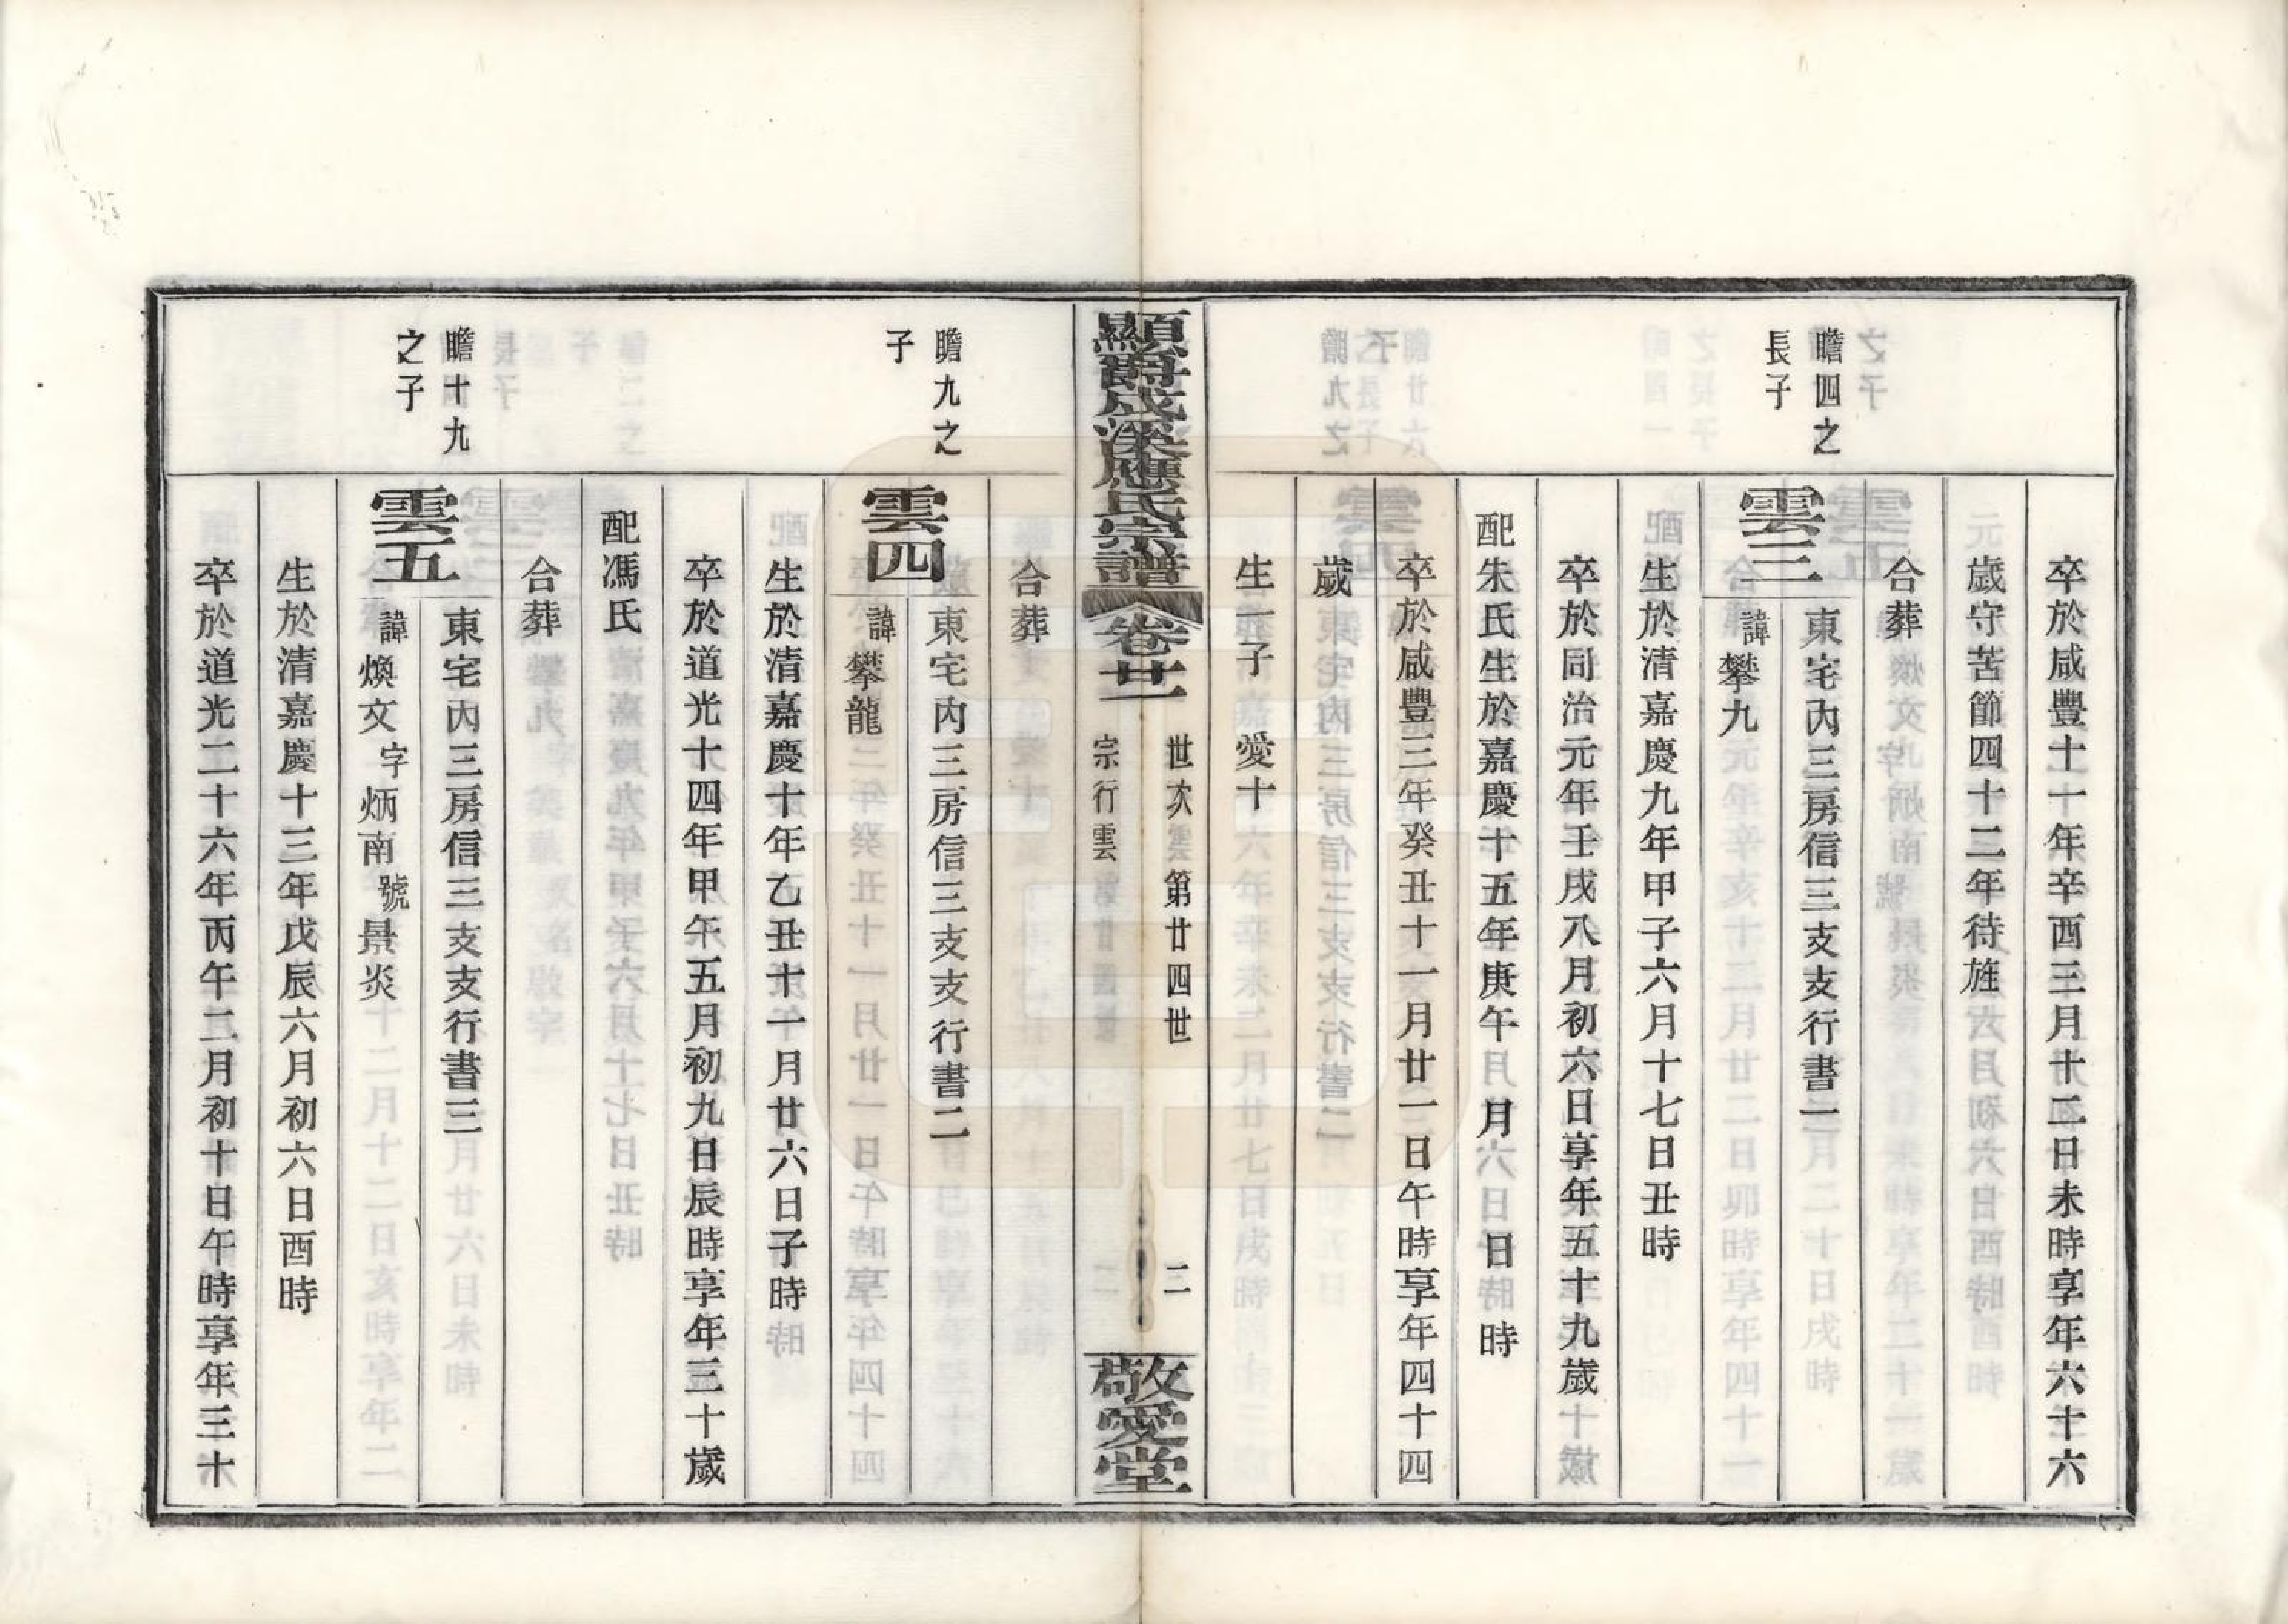 卒於咸豐十一年辛酉三月十二日未時享年六十六
歲守苦節四十二年待旌
合葬
瞻四之
長子
雲三
東宅內三房信三支支行書一
諱攀九
生於清嘉慶九年甲子六月十七日丑時
卒於同治元年壬戌八月初六日享年五十九歲
配朱氏生於嘉慶十五年庚午 月 日 時
卒於咸豐三年癸丑十一月廿一日午時享年四十四
歲
生一子 愛十
顯爵成溪應氏宗譜
卷廿一
世次 第廿四世
宗行雲
二
敬愛堂
合葬
瞻九之
子
雲四
東宅內三房信三支支行書二
諱攀龍
生於清嘉慶十年乙丑十一月廿六日子時
卒於道光十四年甲午五月初九日辰時享年三十歲
配馮氏
合葬
瞻十九
之子
雲五
東宅內三房信三支支行書三
諱煥文字炳南號景炎
生於清嘉慶十三年戊辰六月初六日酉時
卒於道光二十六年丙午二月初十日午時享年三十